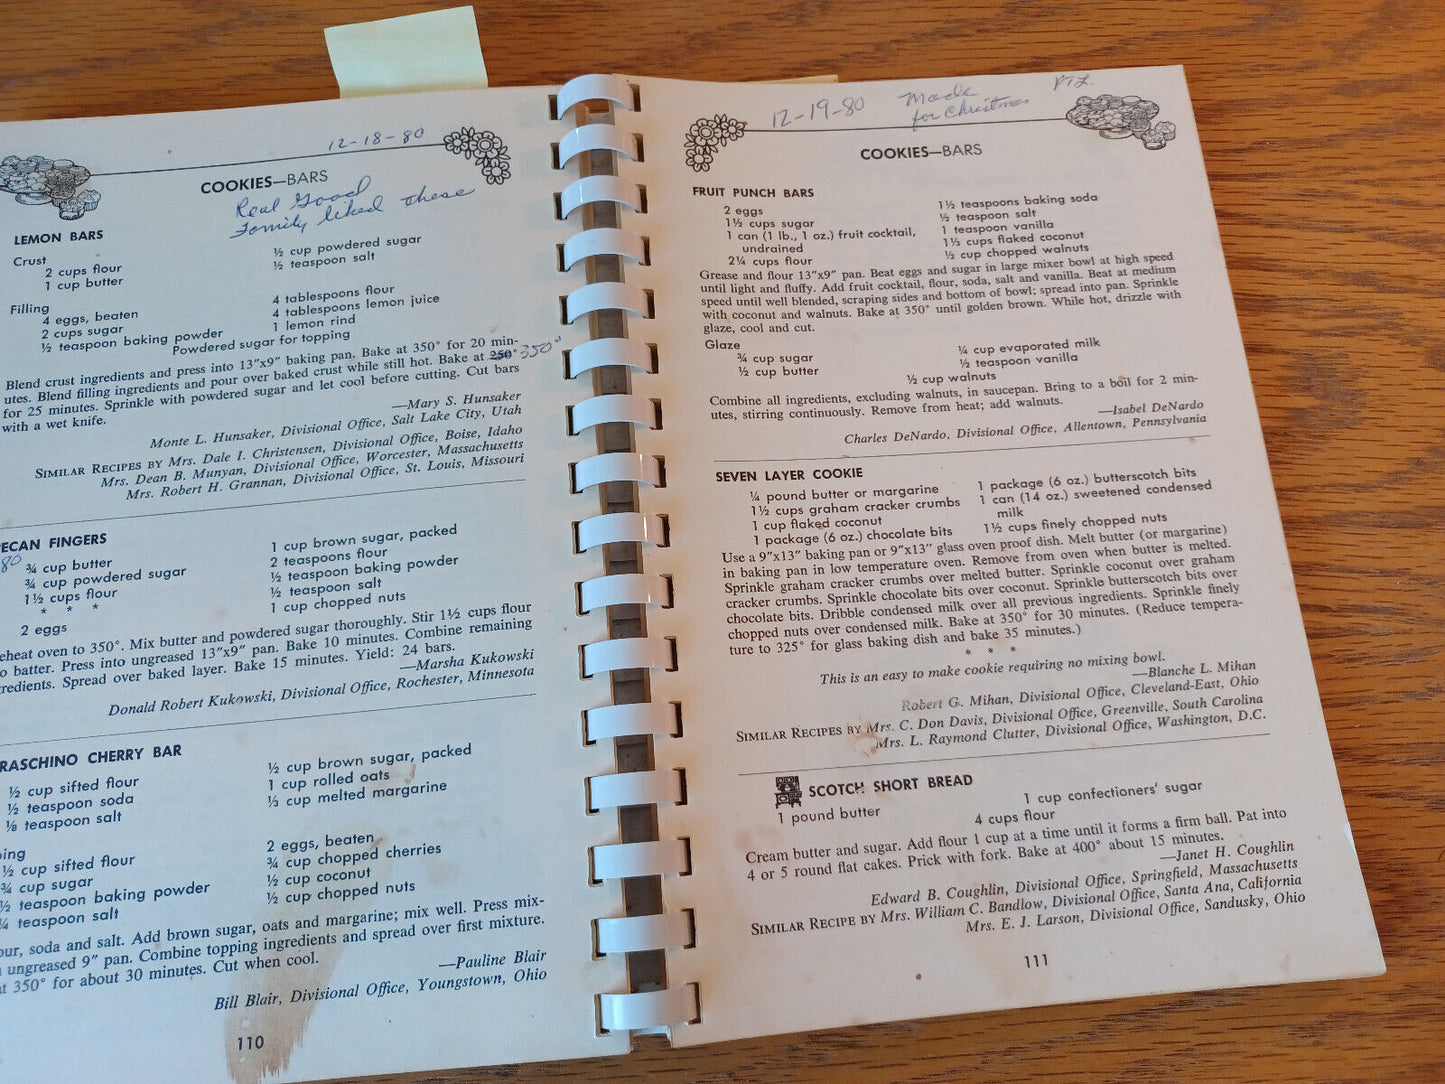 12-18-80
COOKIES—BARS
Real Good
Family liked these
LEMON BARS
Crust
2 cups flour
1 cup butter
½ cup powdered sugar
½ teaspoon salt
Filling
4 eggs, beaten
2 cups sugar
½ teaspoon baking powder
4 tablespoons flour
4 tablespoons lemon juice
1 lemon rind
Powdered sugar for topping
Blend crust ingredients and press into 13"x9" baking pan. Bake at 350° for 20 min-
utes. Blend filling ingredients and pour over baked crust while still hot. Bake at 250° 350°
for 25 minutes. Sprinkle with powdered sugar and let cool before cutting. Cut bars
with a wet knife.
—Mary S. Hunsaker
Monte L. Hunsaker, Divisional Office, Salt Lake City, Utah
SIMILAR RECIPES BY Mrs. Dale I. Christensen, Divisional Office, Boise, Idaho
Mrs. Dean B. Munyan, Divisional Office, Worcester, Massachusetts
Mrs. Robert H. Grannan, Divisional Office, St. Louis, Missouri
ECAN FINGERS
80
¾ cup butter
¾ cup powdered sugar
1½ cups flour
* * *
2 eggs
1 cup brown sugar, packed
2 teaspoons flour
½ teaspoon baking powder
½ teaspoon salt
1 cup chopped nuts
eheat oven to 350°. Mix butter and powdered sugar thoroughly. Stir 1½ cups flour
o batter. Press into ungreased 13"x9" pan. Bake 10 minutes. Combine remaining
redients. Spread over baked layer. Bake 15 minutes. Yield: 24 bars.
—Marsha Kukowski
Donald Robert Kukowski, Divisional Office, Rochester, Minnesota
RASCHINO CHERRY BAR
½ cup sifted flour
½ teaspoon soda
⅛ teaspoon salt
½ cup brown sugar, packed
1 cup rolled oats
⅓ cup melted margarine
ping
½ cup sifted flour
¾ cup sugar
½ teaspoon baking powder
¼ teaspoon salt
2 eggs, beaten
¾ cup chopped cherries
½ cup coconut
½ cup chopped nuts
our, soda and salt. Add brown sugar, oats and margarine; mix well. Press mix-
ungreased 9" pan. Combine topping ingredients and spread over first mixture.
at 350° for about 30 minutes. Cut when cool.
—Pauline Blair
Bill Blair, Divisional Office, Youngstown, Ohio
110
12-19-80
Made
for Christmas
PTL
COOKIES—BARS
FRUIT PUNCH BARS
2 eggs
1½ cups sugar
1 can (1 lb., 1 oz.) fruit cocktail,
undrained
2¼ cups flour
1½ teaspoons baking soda
½ teaspoon salt
1 teaspoon vanilla
1⅓ cups flaked coconut
½ cup chopped walnuts
Grease and flour 13"x9" pan. Beat eggs and sugar in large mixer bowl at high speed
until light and fluffy. Add fruit cocktail, flour, soda, salt and vanilla. Beat at medium
speed until well blended, scraping sides and bottom of bowl; spread into pan. Sprinkle
with coconut and walnuts. Bake at 350° until golden brown. While hot, drizzle with
glaze, cool and cut.
Glaze
¾ cup sugar
½ cup butter
¼ cup evaporated milk
½ teaspoon vanilla
½ cup walnuts
Combine all ingredients, excluding walnuts, in saucepan. Bring to a boil for 2 min-
utes, stirring continuously. Remove from heat; add walnuts.
—Isabel DeNardo
Charles DeNardo, Divisional Office, Allentown, Pennsylvania
SEVEN LAYER COOKIE
¼ pound butter or margarine
1½ cups graham cracker crumbs
1 cup flaked coconut
1 package (6 oz.) chocolate bits
1 package (6 oz.) butterscotch bits
1 can (14 oz.) sweetened condensed
milk
1½ cups finely chopped nuts
Use a 9"x13" baking pan or 9"x13" glass oven proof dish. Melt butter (or margarine)
in baking pan in low temperature oven. Remove from oven when butter is melted.
Sprinkle graham cracker crumbs over melted butter. Sprinkle coconut over graham
cracker crumbs. Sprinkle chocolate bits over coconut. Sprinkle butterscotch bits over
chocolate bits. Dribble condensed milk over all previous ingredients. Sprinkle finely
chopped nuts over condensed milk. Bake at 350° for 30 minutes. (Reduce tempera-
ture to 325° for glass baking dish and bake 35 minutes.)
* * *
This is an easy to make cookie requiring no mixing bowl.
—Blanche L. Mihan
Robert G. Mihan, Divisional Office, Cleveland-East, Ohio
SIMILAR RECIPES BY Mrs. C. Don Davis, Divisional Office, Greenville, South Carolina
Mrs. L. Raymond Clutter, Divisional Office, Washington, D.C.
SCOTCH SHORT BREAD
1 pound butter
1 cup confectioners' sugar
4 cups flour
Cream butter and sugar. Add flour 1 cup at a time until it forms a firm ball. Pat into
4 or 5 round flat cakes. Prick with fork. Bake at 400° about 15 minutes.
—Janet H. Coughlin
Edward B. Coughlin, Divisional Office, Springfield, Massachusetts
SIMILAR RECIPE BY Mrs. William C. Bandlow, Divisional Office, Santa Ana, California
Mrs. E. J. Larson, Divisional Office, Sandusky, Ohio
111